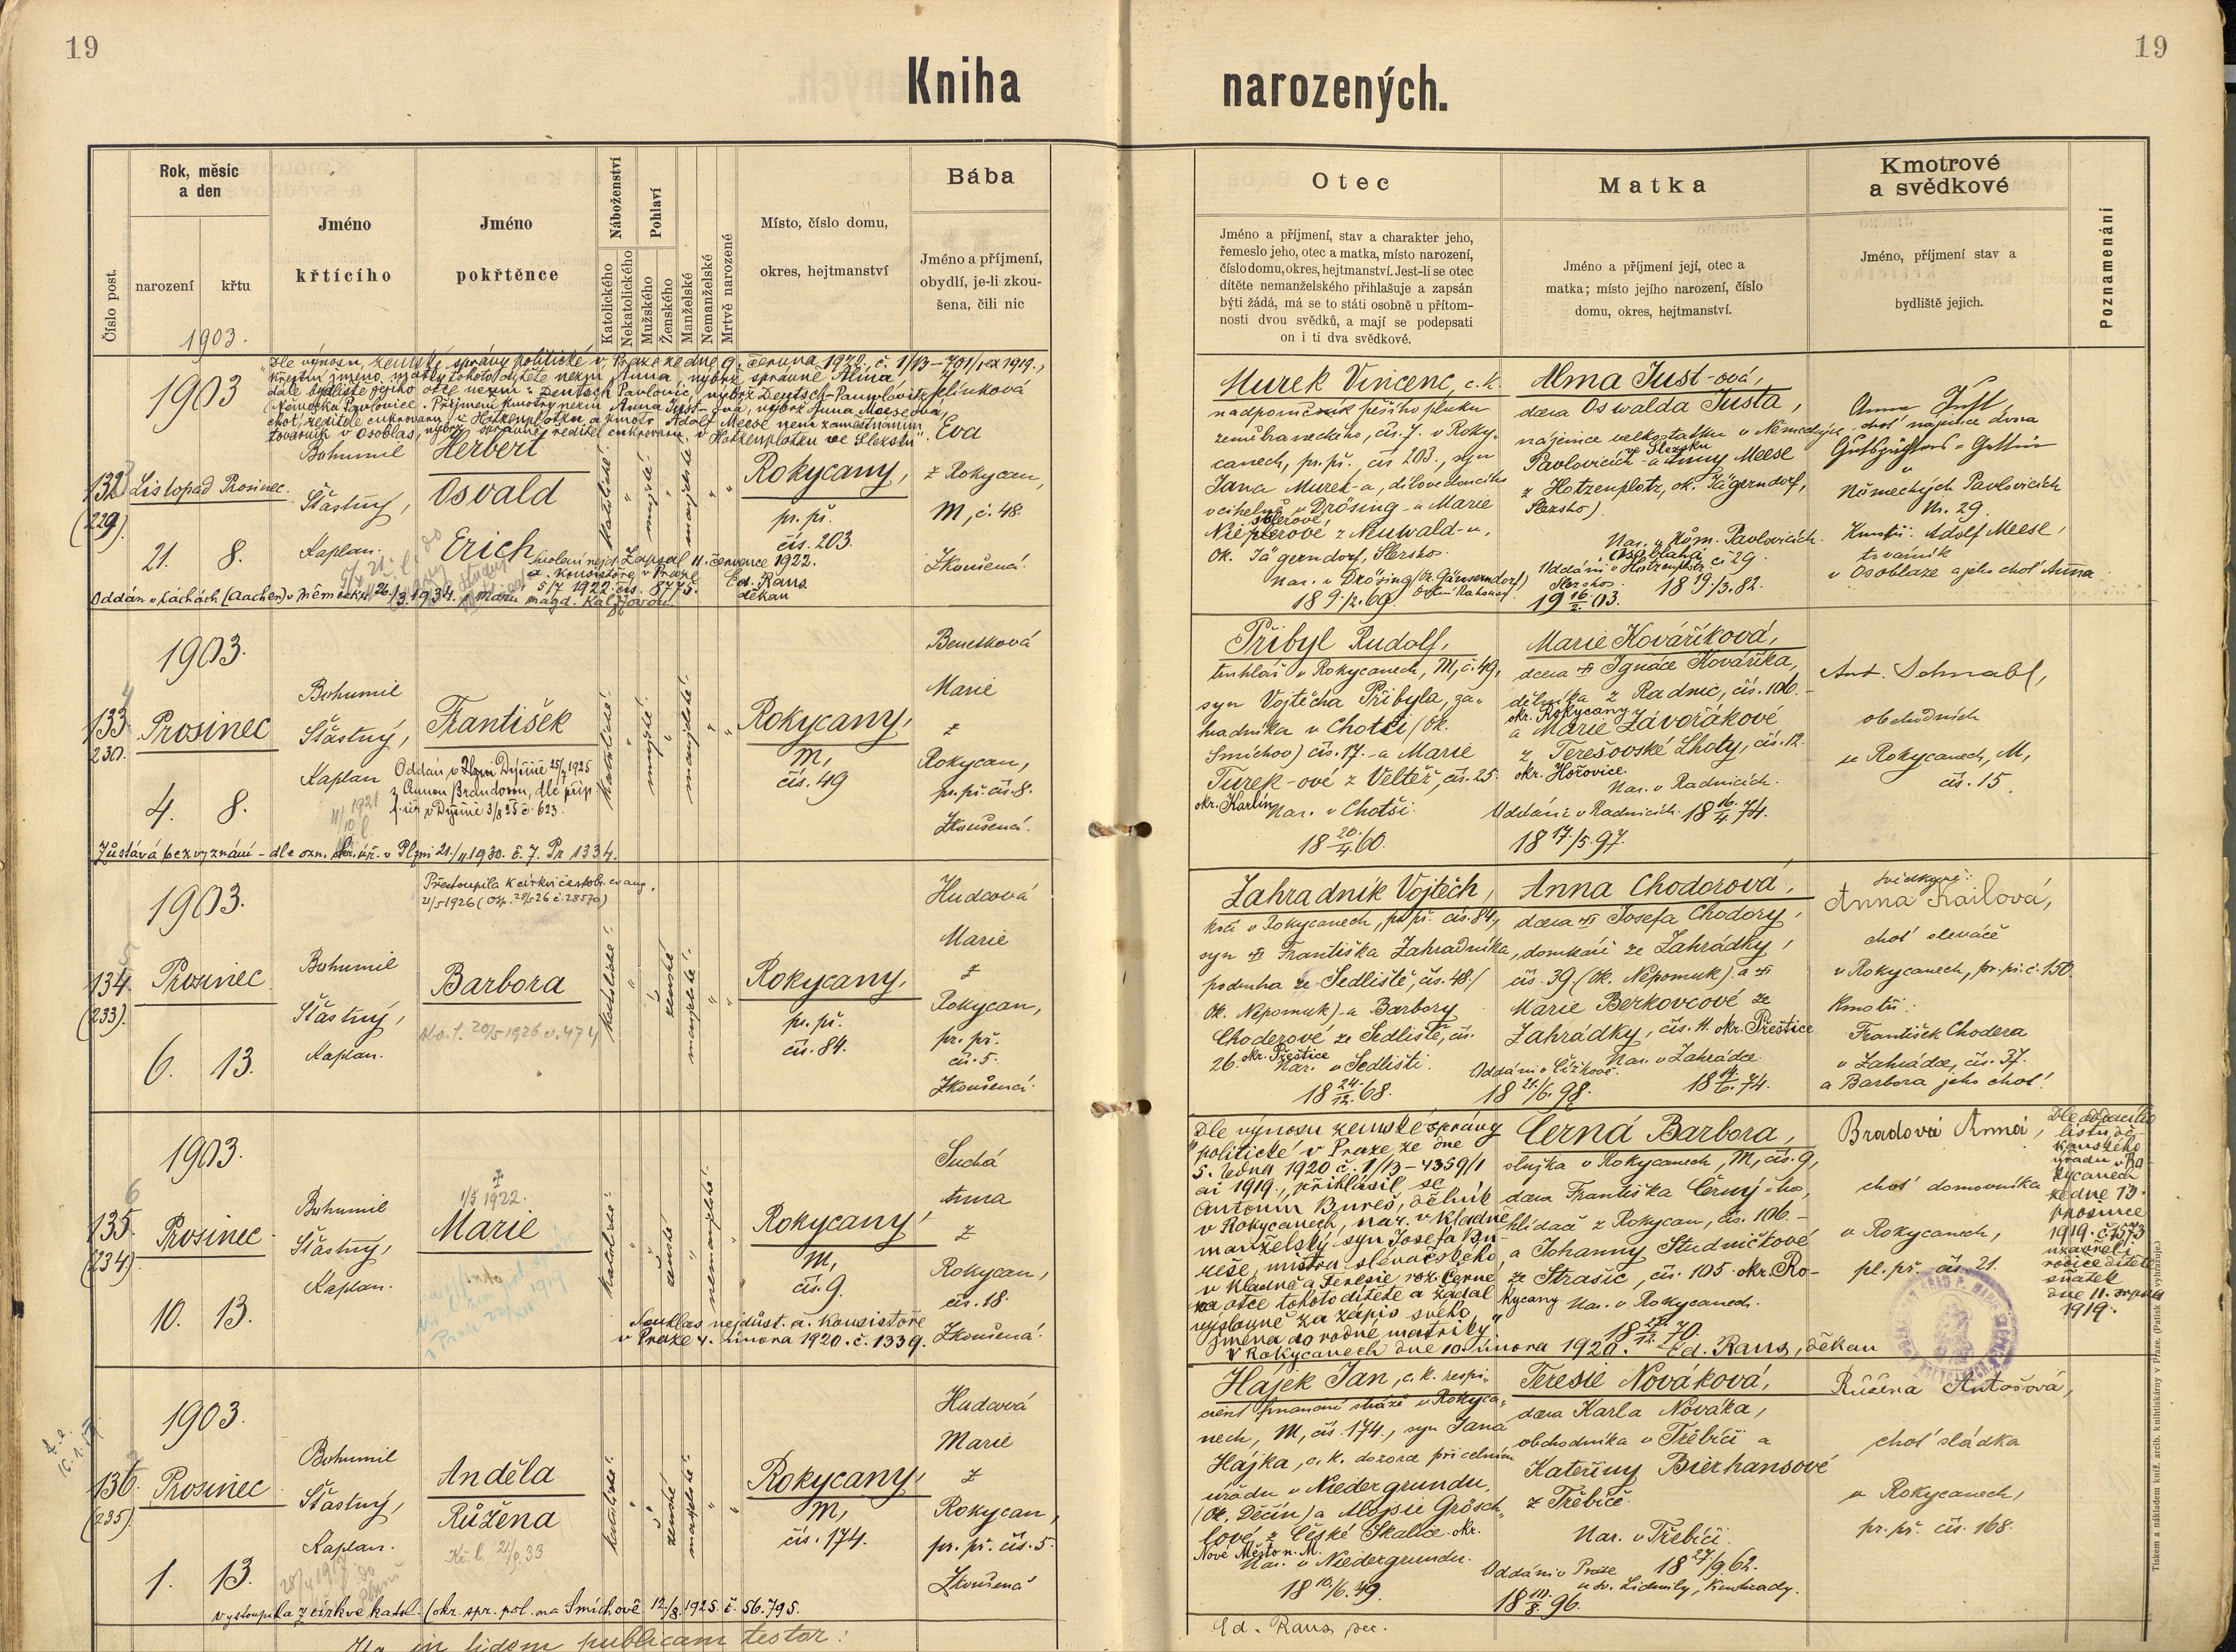 19
19
Kniha
narozených.
Číslo post.
Rok, měsíc
a den
narození
křtu
1903.
Jméno
křtícího
Jméno
pokřtěnce
Náboženství
Katolického
Nekatolického
Pohlaví
Mužského
Ženského
Manželské
Nemanželské
Mrtvě narozené
Místo, číslo domu,
okres, hejtmanství
Bába
Jméno a příjmení,
obydlí, je-li zkou-
šena, čili nic
Otec
Jméno a příjmení, stav a charakter jeho,
řemeslo jeho, otec a matka, místo narození,
číslo domu, okres, hejtmanství. Jest-li se otec
dítěte nemanželského přihlašuje a zapsán
býti žádá, má se to státi osobně u přítom-
nosti dvou svědků, a mají se podepsati
on i ti dva svědkové.
Matka
Jméno a příjmení její, otec a
matka; místo jejího narození, číslo
domu, okres, hejtmanství.
Kmotrové
a svědkové
Jméno, příjmení stav a
bydliště jejich.
Poznamenání
"Dle výnosu zemské správy politické v Praze ze dne 9. června 1922, č. 1/13-
křestní jméno matky tohoto dítěte nezní Anna nýbrž správně Alma,
dále bydliště jejího otce nezní: Deutsch Pavlovic, nýbrž Deutsch-Paulowitz
(Německá Pavlovice). Příjmení kmotry nezní Anna Just-ová, nýbrž Anna Meeseová,
choť ředitele cukrovaru v Hotzenplotzu a kmotr Adolf Meese není zaměstnáním
továrník v Osoblaz, nýbrž správně ředitel cukrovaru v Hotzenplotzu ve Slezsku".
1903
132
(229)
Listopad Prosinec.
21. 8.
Bohumil
Šťastný,
Kaplan.
Herbert
Osvald
Erich
katolické
mužské
manželské
Rokycany,
pr. př.
čís. 203.
Jelínková
Eva
z Rokycan,
M, č. 48.
Zkoušená.
Svolení nejd. Zapsal 11. července 1922.
a. konsistoře v Praze
5/7 1922 čís. 8775.
Ed. Rans
děkan
Oddán v Cáchách (Aachen) v Německu 26./3. 1934. s Marií magd. Kal
Murek Vincenc, c. k.
nadporučník pěšího pluku
zeměbraneckého, čís. 7. v Roky-
canech, pr. př. čís 203., syn
Jana Murek-a, dílovedoucího
v cihelně v Drösing-u Marie
z Neuwald-u,
ok. Jägerndorf, Slezsko.
Nar. v Drösing (ok. Gänserndorf)
18 9./2. 69.
Alma Just-ová,
dcera Oswalda Justa,
nájemce velkostatku v Německých
Pavlovicích ve Slezsku a Anny Meese
z Hotzenplotz, ok. Jägerndorf,
Slezsko).
Nar. v Něm. Pavlovicích.
Osoblaha č 29
Oddáni v Hotzenplotz
Slezsko 18 19./3. 82.
19 16/2. 03.
Anna Just,
choť nájemce dvora
Gutspächters-Gattin
v
Německých Pavlovicích
Nr. 29.
Kmotři: Adolf Meese,
továrník
v Osoblaze a jeho choť Anna
1903.
133
230.
Prosinec
4. 8.
Bohumil
Šťastný,
Kaplan
František
Oddán v Dýšině 25/7 1925
s Annou Brandovou, dle příp.
f. úř. v Dýšině 3/8 25 č. 623.
11/10 1921
Zůstává bez vyznání - dle ozn. okr. úř. v Plzni 21./11. 1930. č. 7. Pr 1334.
katolické.
mužské.
manželské.
Rokycany,
M,
čís. 49
Benešková
Marie
z
Rokycan,
pr. př. čís. 8.
Zkoušená.
Přibyl Rudolf,
truhlář v Rokycanech, M, č. 49,
syn Vojtěcha Přibyla, za-
hradníka v Chotči (ok.
Smíchov) čís. 17. a Marie
Turek-ové z Veltěž, čís. 25.
okr. Karlín Nar. v Chotči.
18 20/4. 60.
Marie Kováříková,
dcera Ignáce Kováříka,
dělníka z Radnic, čís. 106.
okr. Rokycany
a Marie Závořákové
z Těrešovské Lhoty, čís. 12.
okr. Hořovice.
Nar. v Radnicích.
Oddáni v Radnicích. 18 16/4. 74.
18 17./5. 97.
Ant. Schnabl,
obchodník
v Rokycanech, M,
čís. 15
1903.
134.
(233).
Prosinec
6. 13.
Bohumil
Šťastný,
Kaplan.
Přestoupila k církvi českobr. evang.
21/5 1926 (Ozn. 20/5 26 č. 28570)
Barbora
Kř. l. 20/5 1926 č. 474
katolické.
ženské
manželské.
Rokycany,
pr. př.
čís. 84.
Hudcová
Marie
z
Rokycan,
pr. př.
čís. 5.
Zkoušená.
Zahradník Vojtěch,
kočí v Rokycanech, pr. př. čís. 84,
syn Františka Zahradníka,
podruha ze Sedliště, čís. 48./
ok. Nepomuk) a Barbory
Choderové ze Sedliště, čís.
26. okr. Přeštice
Nar. v Sedlišti.
18 24/12. 68.
Anna Chodorová,
dcera Josefa Chodory,
domkáře ze Zahrádky,
čís. 39. (ok. Nepomuk) a
Marie Berkovcové ze
Zahrádky, čís. 11. okr. Přeštice
Nar. v Zahrádce.
Oddáni v Čížkově. 18 14/6. 74.
18 21./6. 98.
svědkyně:
Anna Kailová,
choť slevače
v Rokycanech, pr. př. č. 150.
Kmotři:
František Chodera
v Zahrádce, čís. 37.
a Barbora jeho choť.
1903.
135
(234)
Prosinec
10. 13.
Bohumil
Šťastný,
Kaplan.
1/5 1922.
Marie
katolické.
ženské
nemanželské.
Rokycany,
M,
čís. 9.
Suchá
Anna
z
Rokycan,
čís. 18.
Zkoušená.
Souhlas nejdůst. a. konsistoře
v Praze 4. února 1920. č. 1339.
"Dle výnosu zemské správy
politické v Praze ze dne
5. ledna 1920 č. 1/13-4359/1
ai 1919, přihlásil se
Antonín Bureš, dělník
v Rokycanech, nar. v Kladně
manželský syn Josefa Bu-
reše, mistra slévačského
v Kladně a Teresie roz. Černé
za otce tohoto dítěte a žádal
výslovně za zápis svého
jména do rodné matriky".
V Rokycanech dne 10. února 1920. Ed. Rans, děkan
Černá Barbora,
služka v Rokycanech, M, čís. 9,
dcera Františka Černý-ho,
hlídače z Rokycan, čís. 106.
a Johanny Studničkové
ze Strašic, čís. 105 okr. Ro-
kycany Nar. v Rokycanech.
18 /12. 70.
Bradová Anna,
choť domovníka
v Rokycanech,
pl. př. čís. 21.
Dle oddacího
listu dě-
kanského
úřadu v Ro-
kycanech
ze dne 13.
prosince
1919. č. 1573
uzavřeli
rodiče dítěte
sňatek
dne 11. srpna
1919.
1903.
136.
(235)
Prosinec
1. 13.
Bohumil
Šťastný,
Kaplan.
Anděla
Růžena
Kř. l. 21/9. 33
katolické.
ženské
manželské
Rokycany,
M,
čís. 174.
Hudcová
Marie
z
Rokycan,
pr. př. čís. 5.
Zkoušená
Vystoupila z církve katol. (okr. spr. pol. na Smíchově 12./8. 1925. č. 56.795.
Hájek Jan, c. k. respi-
cient finanční stráže v Rokyca-
nech, M, čís. 174., syn Jana
Hájka, c. k. dozorce při celním
úřadu v Niedergrundu,
(ok. Děčín) a Aloisie Grösch-
lové z České Skalice. okr.
Nové Město n. M.
Nar. v Niedergrundu.
18 10./6. 49.
Teresie Nováková,
dcera Karla Nováka,
obchodníka v Třebíči a
Kateřiny Bierhansové
z Třebíče.
Nar. v Třebíči.
Oddáni v Praze 18 27/9 62.
u sv. Lidmily, Vinohrady.
18 10/8. 96.
Růžena Antošová,
choť sládka
v Rokycanech,
pr. př. čís. 168.
in fidem publicam testor:
Ed. Rans
Tiskem a nákladem kníž. arcib. knihtiskárny v Praze. (Patisk vyhražuje.)